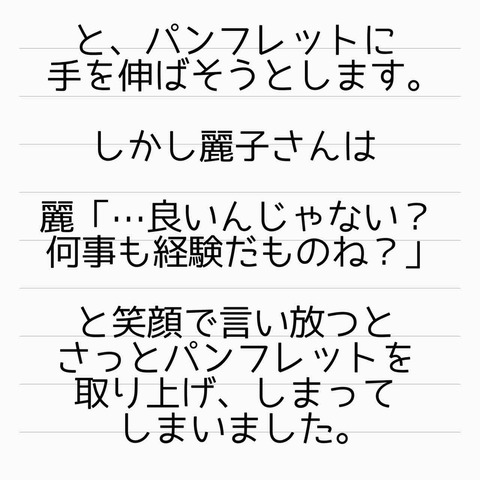 と、パンフレットに
手を伸ばそうとします。
しかし麗子さんは
麗「…良いんじゃない？
何事も経験だものね？」
と笑顔で言い放つと
さっとパンフレットを
取り上げ、しまって
しまいました。